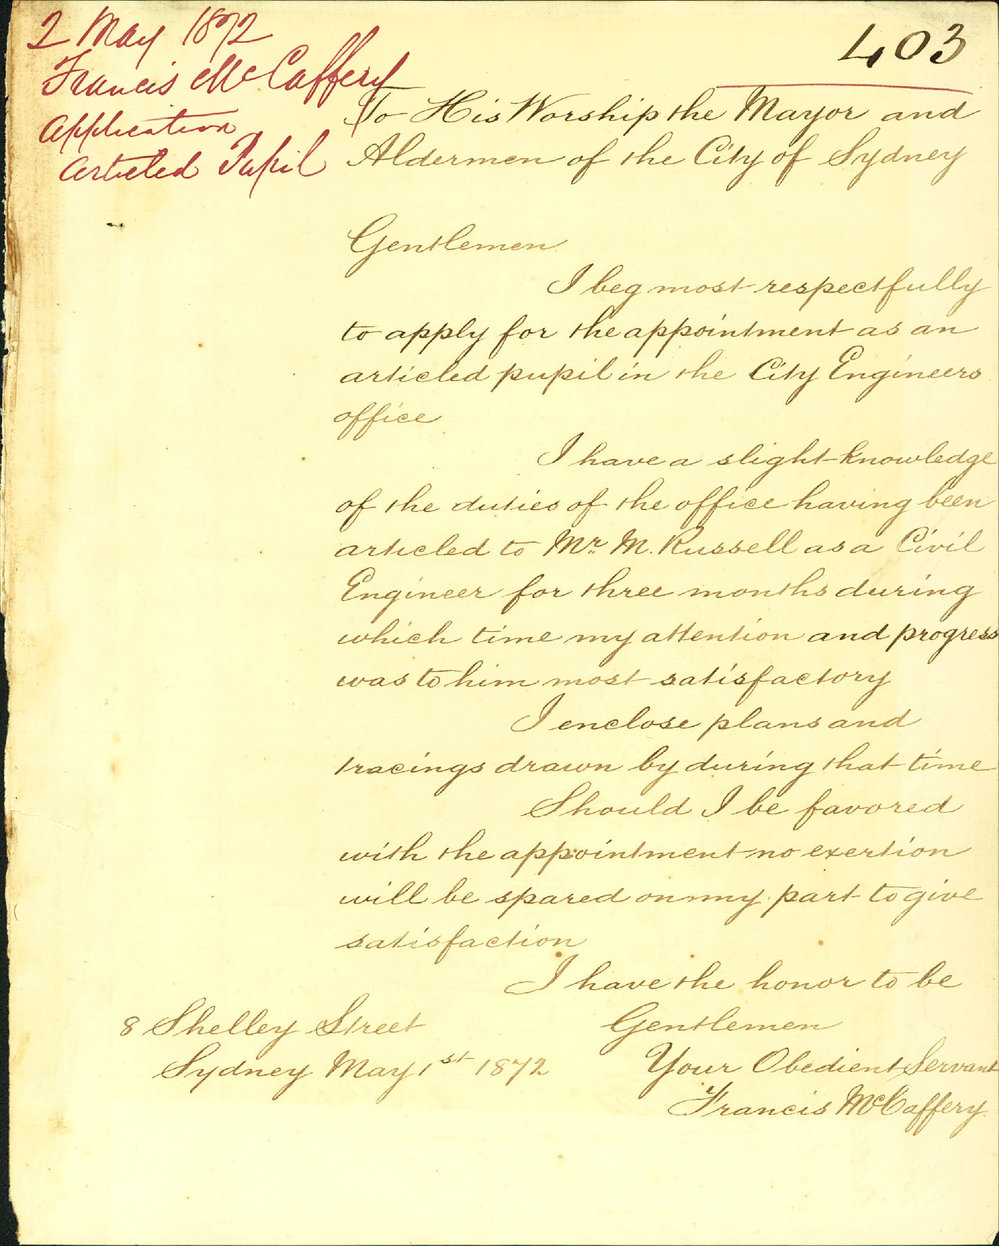 2 May 1872
Francis McCaffery
Application
Articled Pupil
403
To His Worship the Mayor and
Aldermen of the City of Sydney
Gentlemen
I beg most respectfully
to apply for the appointment as an
articled pupil in the City Engineers
office
I have a slight knowledge
of the duties of the office having been
articled to Mr. M. Russell as a Civil
Engineer for three months during
which time my attention and progress
was to him most satisfactory
I enclose plans and
tracings drawn by during that time
Should I be favored
with the appointment no exertion
will be spared on my part to give
satisfaction
I have the honor to be
Gentlemen
Your Obedient Servant
Francis McCaffery
8 Shelley Street
Sydney May 1st 1872